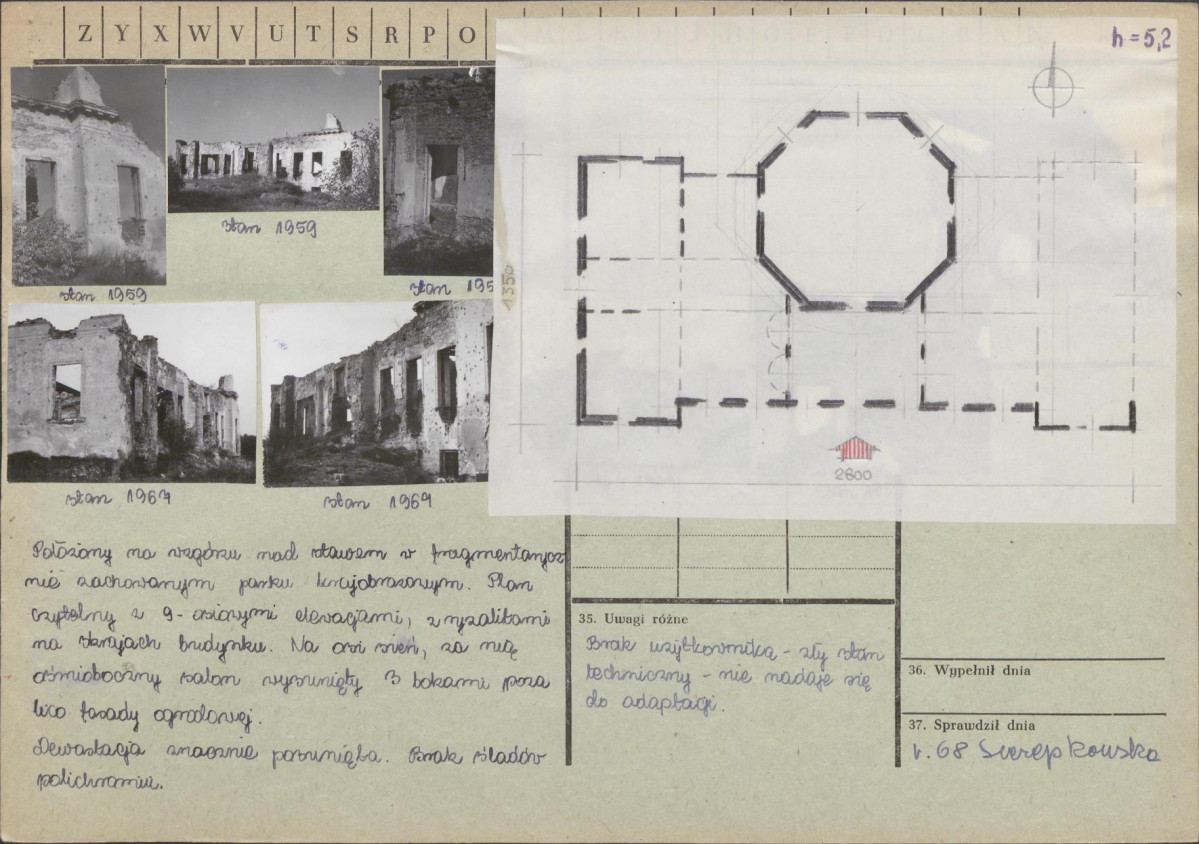 Z Y X W V U T S R P O
h = 5,2
stan 1959
stan 1959
stan 195
1350
stan 1964
stan 1964
2600
Położony na wzgórzu nad stawem w fragmentarycz
nie zachowanym parku krajobrazowym. Plan
czytelny z 9-osiowymi elewacjami, z ryzalitami
na skrajach budynku. Na osi sień, za nią
ośmioboczny salon wysunięty 3 bokami poza
lico fasady ogrodowej.
Dewastacja znacznie posunięta. Brak śladów
polichromii.
35. Uwagi różne
Brak użytkownika - zły stan
techniczny - nie nadaje się
do adaptacji.
36. Wypełnił dnia
37. Sprawdził dnia
v. 68